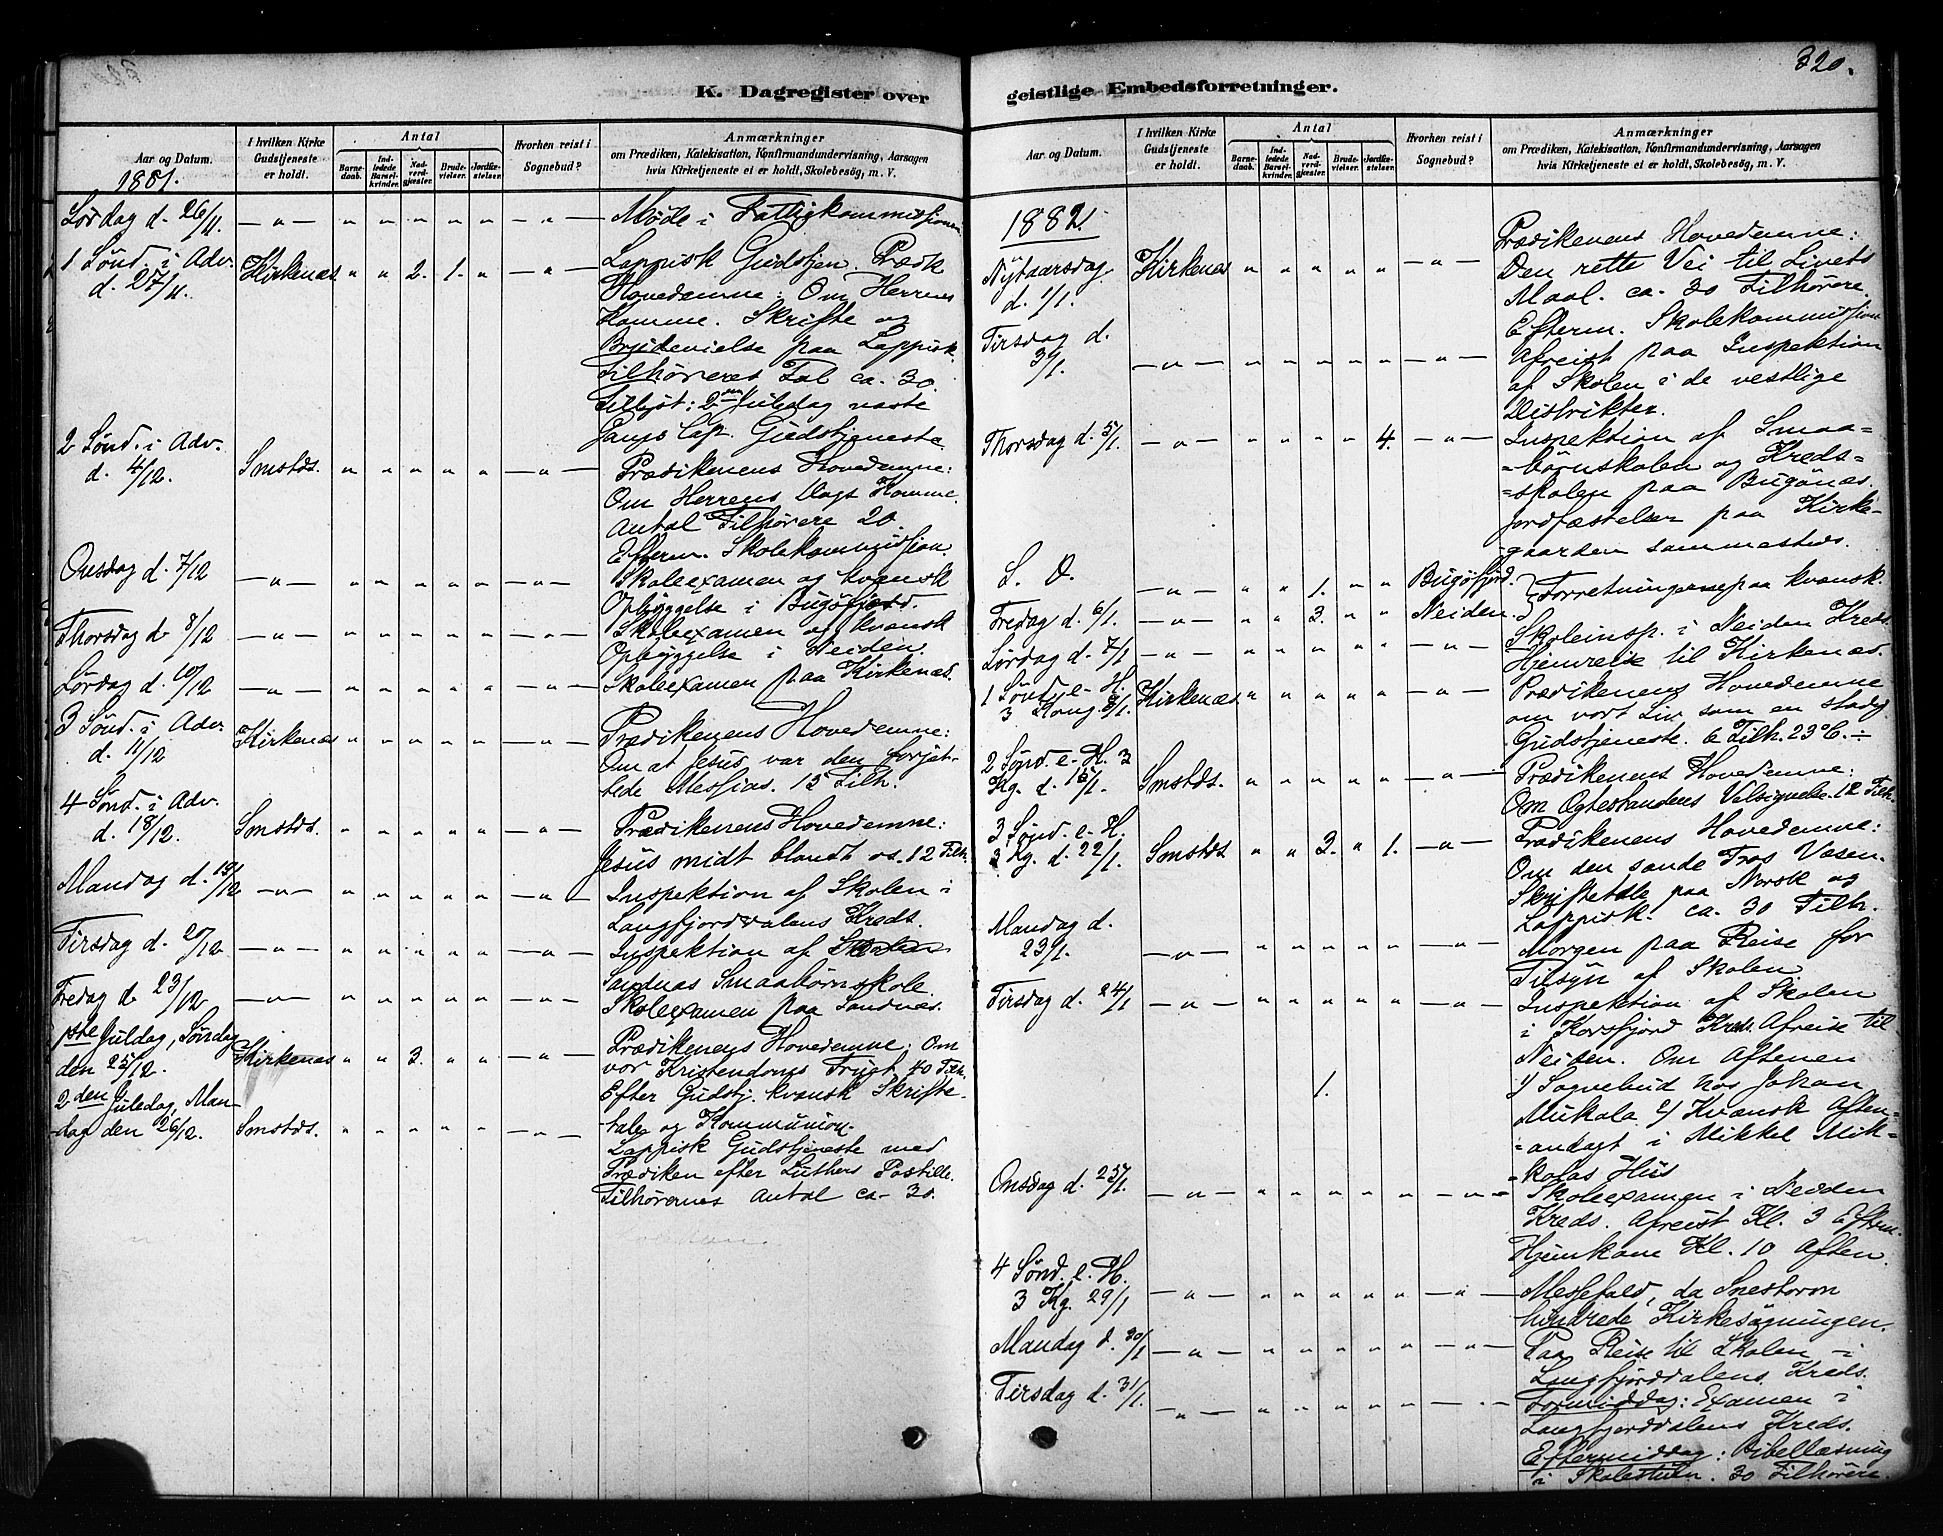 320.
K. Dagregister over
Aar og Datum.
I hvilken Kirke Gudstjeneste er holdt.
Antal
Barnedaab.
Indledede Barselkvinder.
Nadverdgjæster.
Brudevielser.
Jordfæstelser.
Hvorhen reist i Sognebud?
Anmærkninger
om Prædiken, Katekisation, Konfirmandundervisning, Aarsagen
hvis Kirketjeneste ei er holdt, Skolebesøg, m. V.
1881.
Lørdag d. 26/11. — " — " " " " " — " — Møde i Fattigkommissionen
1 Sønd. i Adv. Kirkenæs " " 2. 1. " — " — Lappisk Gudstjen. Prædk
d. 27/11.
Hovedemne: Om Herrens
Komme. Skrifte og
Brudevielse paa Lappisk.
Tilhøreres Tal ca. 30.
Tillyst: 2den Juledag næste
Gangs Lap. Gudstjeneste.
2 Sønd. i Adv.
d. 4/12. Smstds. " " " " " — " — Prædikenens Hovedemne:
Om Herrens Dags Komme.
Antal Tilhørere 20.
Efterm. Skolekommission.
Onsdag d. 7/12 — " — " " " " " — " — Skoleexamen og kvænsk
Opbyggelse i Bugöfjord.
Thorsdag d. 8/12 — " — " " " " " — " — Skoleexamen og kvænsk
Opbyggelse i Neiden.
Lørdag d. 10/12 — " — " " " " " — " — Skoleexamen paa Kirkenæs.
3 Sønd. i Adv.
d. 11/12 Kirkenæs " " " " " — " — Prædikenens Hovedemne:
Om at Jesus var den forjæt-
tede Messias. 15 Tilh.
4 Sønd. i Adv.
d. 18/12. Smstds. " " " " " — " — Prædikenens Hovedemne:
Jesus midt blandt os. 12 Tilh.
Mandag d. 19/12 — " — " " " " " — " — Inspektion af Skolen i
Langfjordalens Kreds.
Tirsdag d. 20/12 — " — " " " " " — " — Inspektion af Skolen
Sandnæs Smaabørnskole.
Fredag d. 23/12 — " — " " " " " — " — Skoleexamen paa Sandnæs.
1ste Juledag, Søndag
den 25/12. Kirkenæs " " 3. " " — " — Prædikenens Hovedemne: Om
vor Kristendoms Frugt. 40 Tilh.
Efter Gudstj. kvænsk Skrifte-
tale og Kommunion.
2den Juledag, Man-
dag den 26/12. Smstds. " " " " " — " — Lappisk Gudstjeneste med
Prædiken efter Luthers Postille.
Tilhørernes Antal ca. 30.
geistlige Embedsforretninger.
Aar og Datum.
I hvilken Kirke Gudstjeneste er holdt.
Antal
Barnedaab.
Indledede Barselkvinder.
Nadverdgjæster.
Brudevielser.
Jordfæstelser.
Hvorhen reist i Sognebud?
Anmærkninger
om Prædiken, Katekisation, Konfirmandundervisning, Aarsagen
hvis Kirketjeneste ei er holdt, Skolebesøg, m. V.
1882.
Nytaarsdag Kirkenæs " " " " " — " — Prædikenens Hovedemne:
d. 1/1. Den rette Vei til Livets
Maal. ca. 30 Tilhørere.
Efterm. Skolekommission
Tirsdag d.
3/1. — " — " " " " " — " — Afreist paa Inspektion
af Skolen i de vestlige
Distrikter.
Thorsdag d. 5/1. — " — " " " " 4. — " — Inspektion af Smaa-
=børnskolen og Kreds=
=skolen paa Bugönæs.
Jordfæstelser paa Kirke-
gaarden sammesteds.
S. D. — " — " " 1. " " Bugöfjord. } Forretningerne paa kvænsk.
Fredag d. 6/1. — " — " " 3. " " Neiden.
Skoleinsp. i Neiden Kreds
Lørdag d. 7/1 — " — " " " " " — " — Hjemreise til Kirkenæs.
1 Sønd. e. H.
3 Kong. 8/1. Kirkenæs " " " " " — " — Prædikenens Hovedemne
om vort Liv som en stadig
Gudstjeneste. 6 Tilh. 23°C. ÷
2 Sønd. e. H. 3
Kg. d. 15/1. Smstds. " " " " " — " — Prædikenens Hovedemne:
Om Egtestandens Velsignelse. 12 Tilh.
3 Sønd. e. H.
3 Kg. d. 22/1. Smstds " " 3. " 1. — " — Prædikenens Hovedemne:
Om den sande Tros Væsen.
Skriftetale paa Norsk og
Lappisk. ca. 30 Tilh.
Mandag d.
23/1. — " — " " " " " — " — Morgen paa Reise for
Tilsyn af Skolen.
Tirsdag d. 24/1 — " — " " " " " — " — Inspektion af Skolen
i Korsfjord Kreds. Afreise til
Neiden. Om Aftenen
1. 1/ Sognebud hos Johan
Mukala 2/ Kvænsk Aften-
=andagt i Mikkel Mik=
=kolas Hus
Onsdag d. 25/1. — " — " " " " " — " — Skoleexamen i Neiden
Kreds. Afreist Kl. 3 Efterm.
Hjemkom Kl. 10 Aften.
4 Sønd. e. H.
3 Kg. 29/1 — " — " " " " " — " — Messefald, da Snestorm
hindrede Kirkesøgningen.
Mandag d. 30/1 — " — " " " " " — " — Paa Reise til Skolen i
Langfjorddalens Kreds.
Tirsdag d. 31/1. — " — " " " " " — " — Formiddag: Examen i
Langfjorddalens Kreds.
Eftermiddag: Bibellæsning
i Skolestuen. 30 Tilhørere.